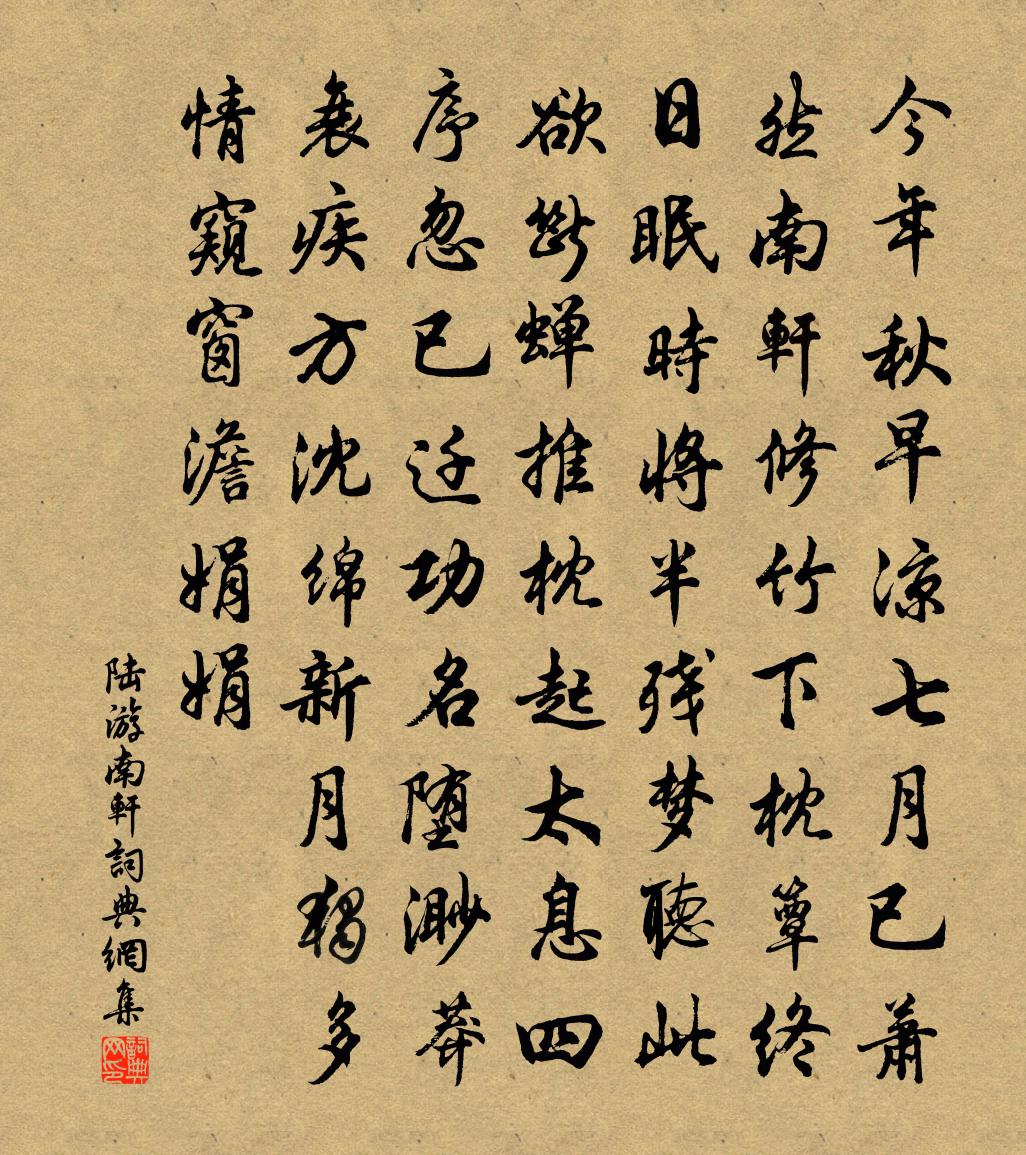 今年秋早凉七月已萧
然南軒修竹下枕簟终
日眠時将半残梦聴此
欲断蝉推枕起太息四
序忽已迁功名堕渺莽
衰疾方沈绵新月独多
情窺窗澹娟娟
陆游南軒詞典網集
詞典网印